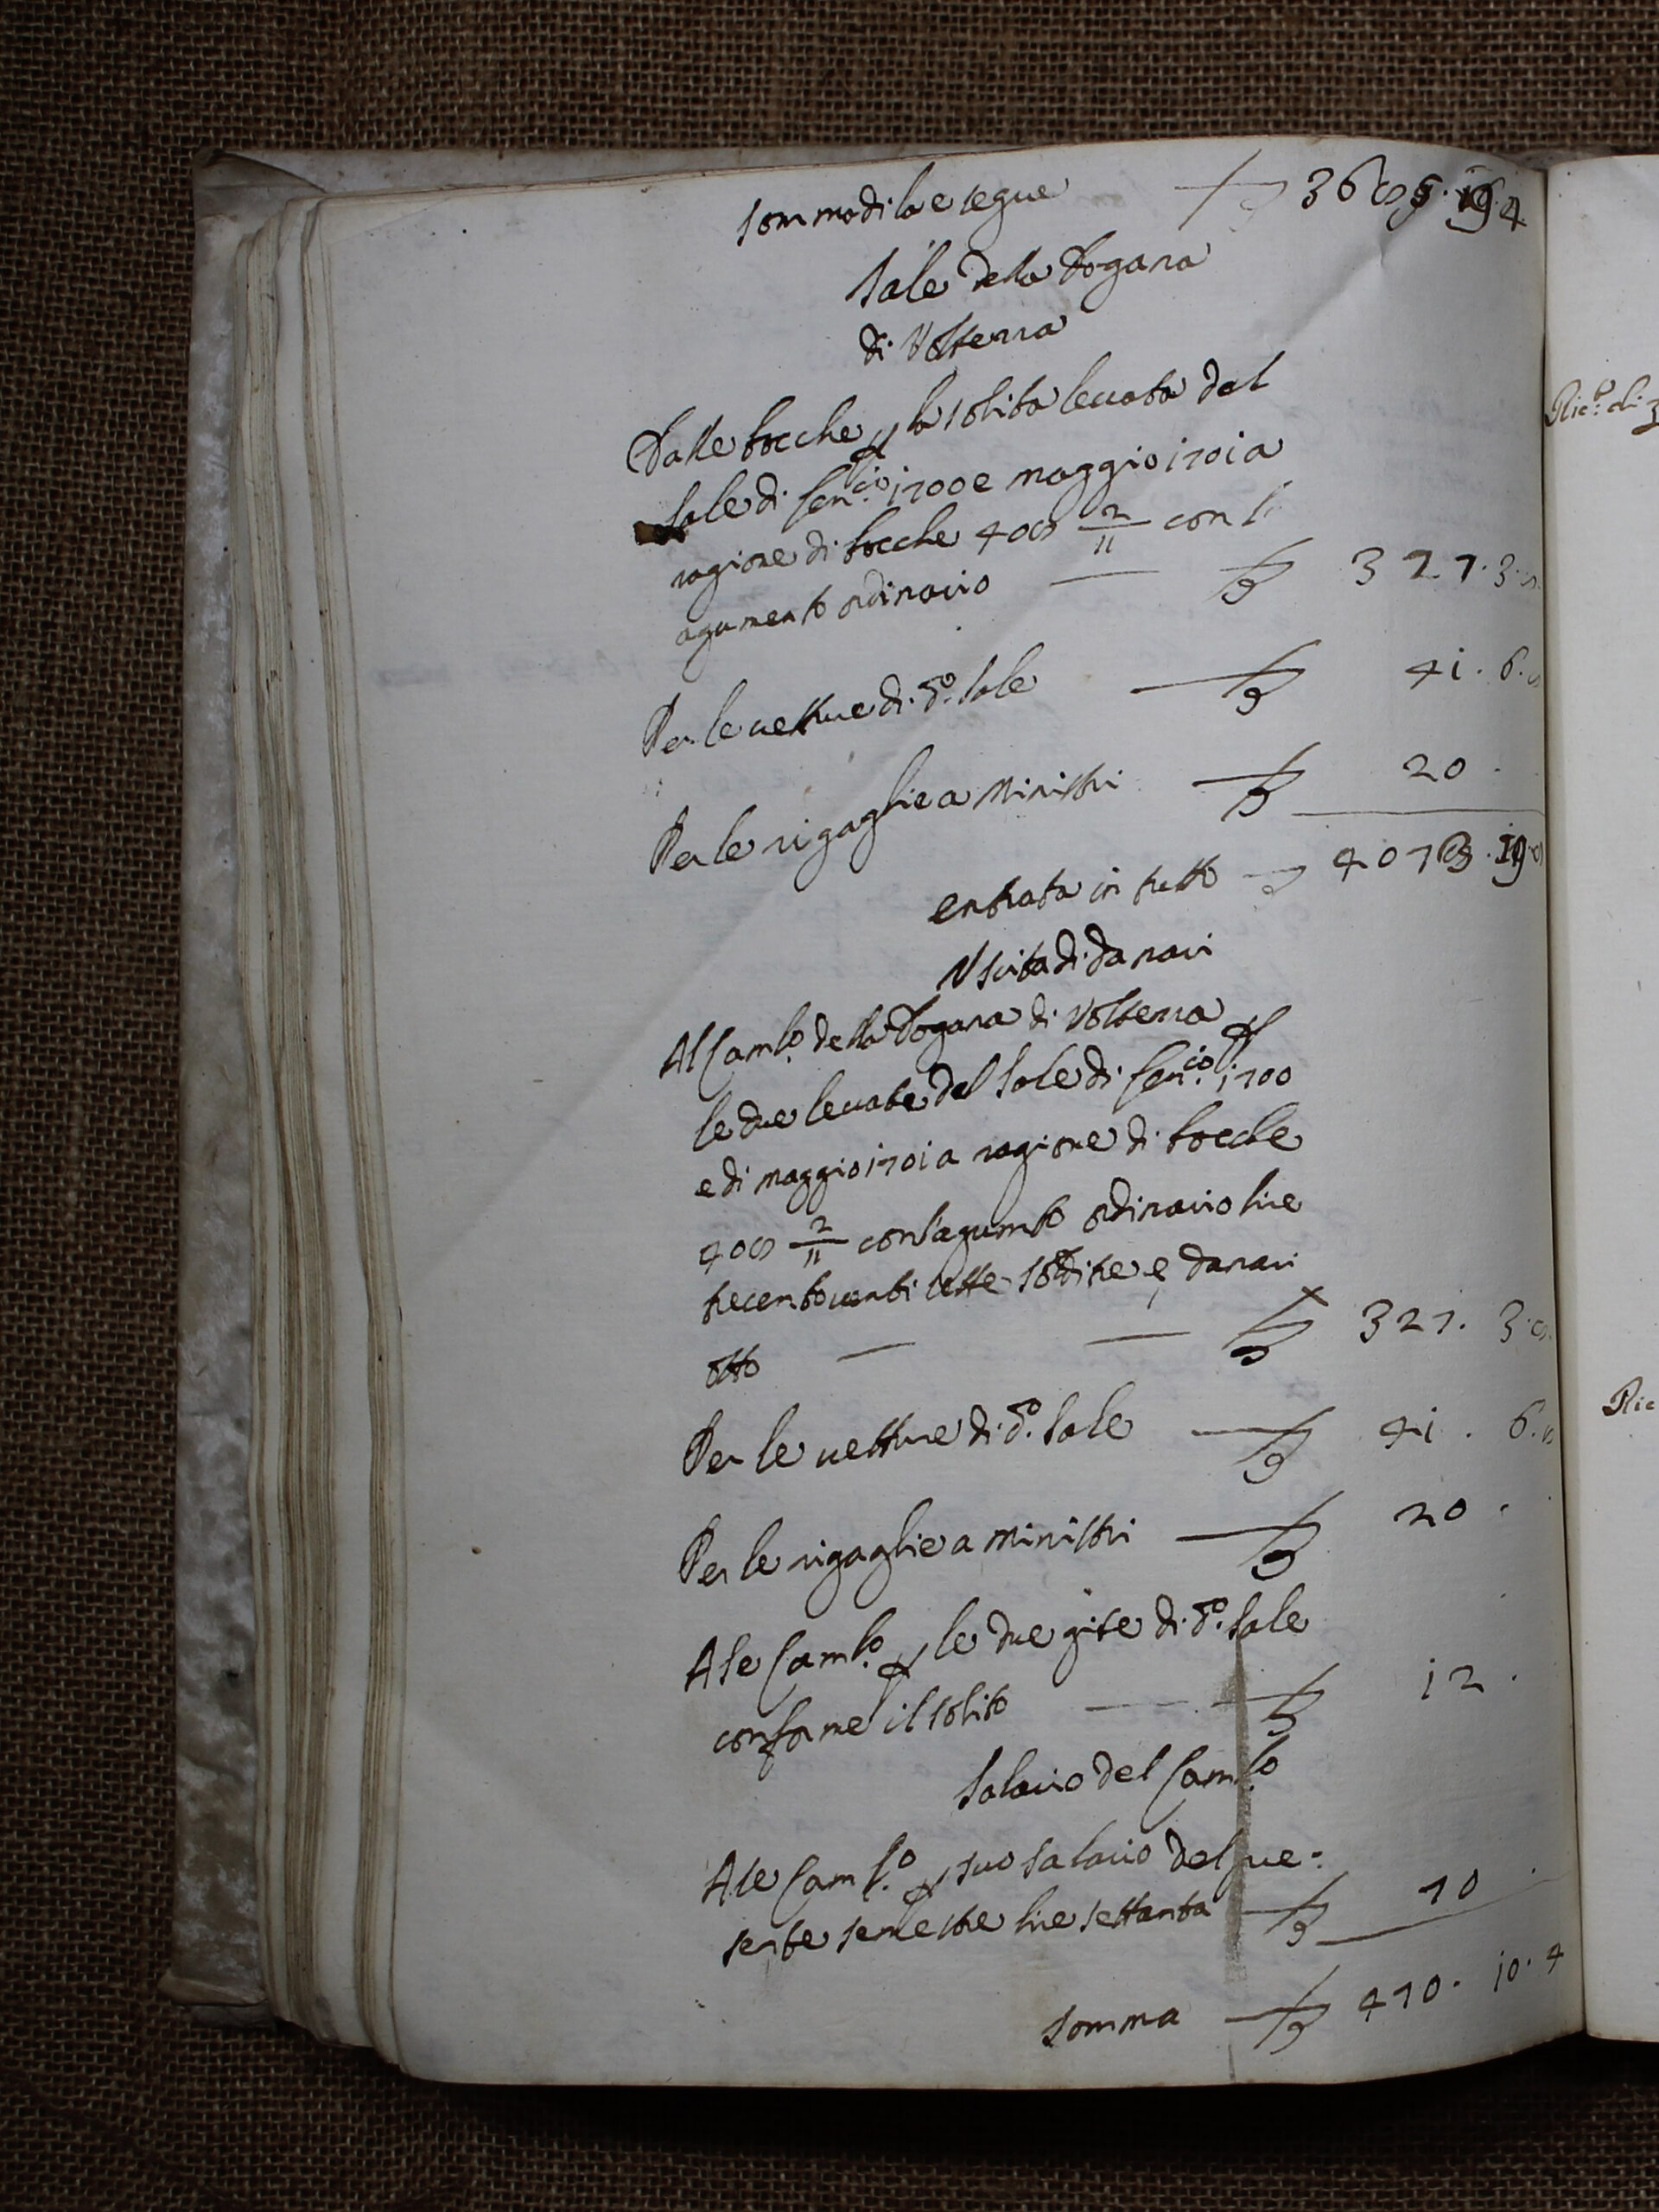 somma di la e segue 3685.19.4
Sale della Dogana
di Volterra
Dalle bocche p la solita leuata del
sale di Gen.io 1700 e maggio 1701 a
ragione di bocche 408 2/11 con l
agumento ordinario — 327.3.8
Per le uetture di d.o sale — 41.6.8
Per le rigaglie a Ministri — 20.
entrata in tutto
Uscita di danari
Al Cam.lo della Dogana di Volterra p
le due leuate del sale di Gen.io 1700
e di maggio 1701 a ragione di bocche
408 2/11 con l'agumto ordinario lire
trecentouenti sette soldi tre e danari
otto — — 327. 3.8
Per le uetture di d.o sale — 41. 6.8
Per le rigaglie a Ministri — 20.
A se Cam.lo p le due gite di d.o sale
conforme il solito — 12.
Salario del Cam.lo
A se Cam.lo p suo salario del pre=
sente semestre lire settanta 70
somma — 470. 10.4
Ric.o di
Ric